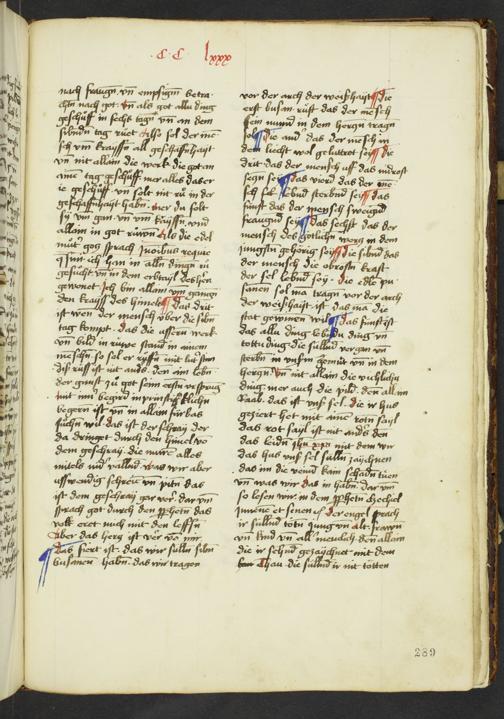 C C lxxx
nach fraugen vn̄ empfigen betra
chtn nach got. vn̄ als got allu ding
geschuff in sechs tagn vn̄ an dem
sibendn tag ruet Also sol der me
sch vm kraysß all geschaffenhayt
vn̄ nit allain die werk die got an
aine tag geschuff mer alles daß er
ie geschuff vn̄ solt nit ru in der
geschaffenhayt habn. mer du solt
allain in got ruwen Als die edel
muter gotz sprach In oibus requie
q̄siui ich han in allen dingn ru
gesucht vn̄ in dem erbtayl des h̄ren
gewonet ich bin allain vm gangen
den krayß des himels das drit
ist wen der mensch über die sibn
tag kompt. das die ussern werk
vn̄ bild in ruwe stand in ainem
menschn so sol er ruffn mit lut stim
diß ruff ist nit anders. den ain lebn
der gunst zu got sein ersten ursprung
mit ain begird in prinstiklichn
begern ist vn̄ in allain fürbas
suchn wil. das ist der schray der
da dringet durch den himel vō
dem geschray die mure alles
mitels nid valland. was wir aber
usswendig schrien vn̄ pitn das
ist dem geschray gar ver. dar vm
sprach got durch den p̄phetn das
volk eret mich mit den lefftzn
aber das herz ist ver vō mir
das fiert ist. das wir sulln sibn
busanen habn. das wir tragen
vor der arch der weißhayt die
erst busan rufft das der mēsch
sein mund in dem herzn tragn
sol die and̄ das der mēsch in
dem liecht wol geluttret sey die
drit das der mensch uff das nidrost
segn sey das vierd das der me
sch sol lebend sterbend sei das
fünft das der mensch sweigend
fraugend sey das sechst das der
mensch des götlichn worz in dem
jungstn gehörig sey die sibnd das
der mensch die obrostn kraft
der sel lebend sey. die edln pu
sanen sol ma tragn vor der arch
der weißhayt. ist das ma die
stat gewinen wil das fünft ist
das allu ding lebedu ding vn̄
tottu ding die sullnd vergan vn̄
sterbn in vnsrm gemüt vn̄ in dem
herzn. vn̄ nit allain die wichlichn
ding mer auch die pild. den allain
Raab. das ist vnß sel. die ir hus
geziert het mit aine rottn sayl
das rot sayl ist nit anders den
das leidn jhū xp̄i mit dem wir
das hus vnß sel sulln zaichnen
das im die veind kain schadn tuen
vn̄ was wir das in habn. dar vm
so lesen wir in dem p̄phetn ezechiel
der engel sprach
ir sullnd totn jung vn̄ alt. frawen
vn̄ kind vn̄ all menschē. den allain
die ir sehnd gezaychnet mit dem
thau die sullnd ir nit tötten
289